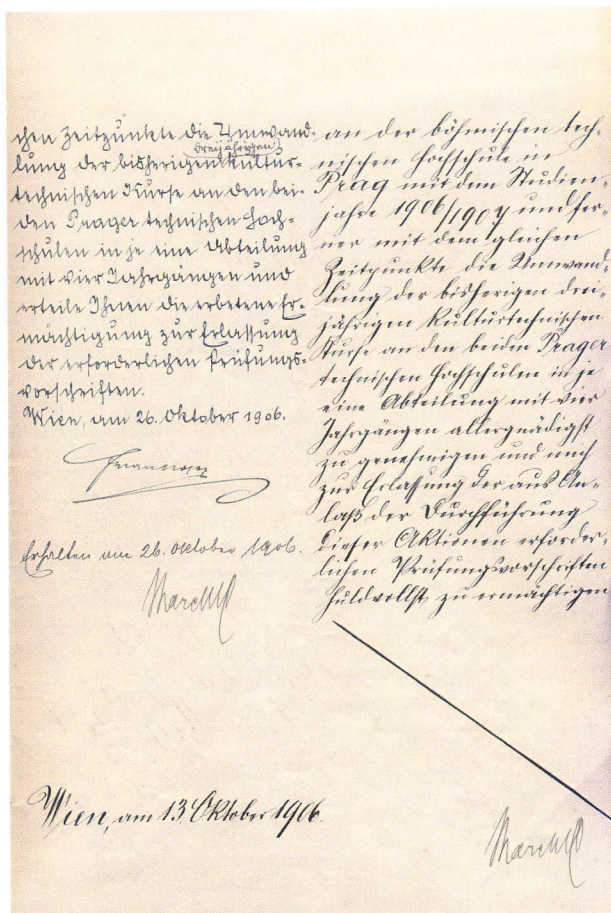 chen Zeitpunkte die Umwand-
dreijährigen
lung der bisherigen kultur-
technischen Kurse an den bei-
den Prager technischen Hoch-
schulen in je eine Abteilung
mit vier Jahrgängen und
erteile Ihnen die erbetene Er-
mächtigung zur Erlassung
der erforderlichen Prüfungs-
vorschriften.
Wien, am 26. Oktober 1906.
Erhalten am 26. Oktober 1906.
Marchet
an der böhmischen tech-
nischen Hochschule in
Prag mit dem Studien-
jahre 1906/1907 und fer-
ner mit dem gleichen
Zeitpunkte die Umwand-
lung der bisherigen drei-
jährigen kulturtechnischen
Kurse an den beiden Prager
technischen Hochschulen in je
eine Abteilung mit vier
Jahrgängen allergnädigst
zu genehmigen und mich
zur Erlassung der aus An-
laß der Durchführung
dieser Aktionen erforder-
lichen Prüfungsvorschriften
huldvollst zu ermächtigen
Wien, am 13 Oktober 1906.
Marchet